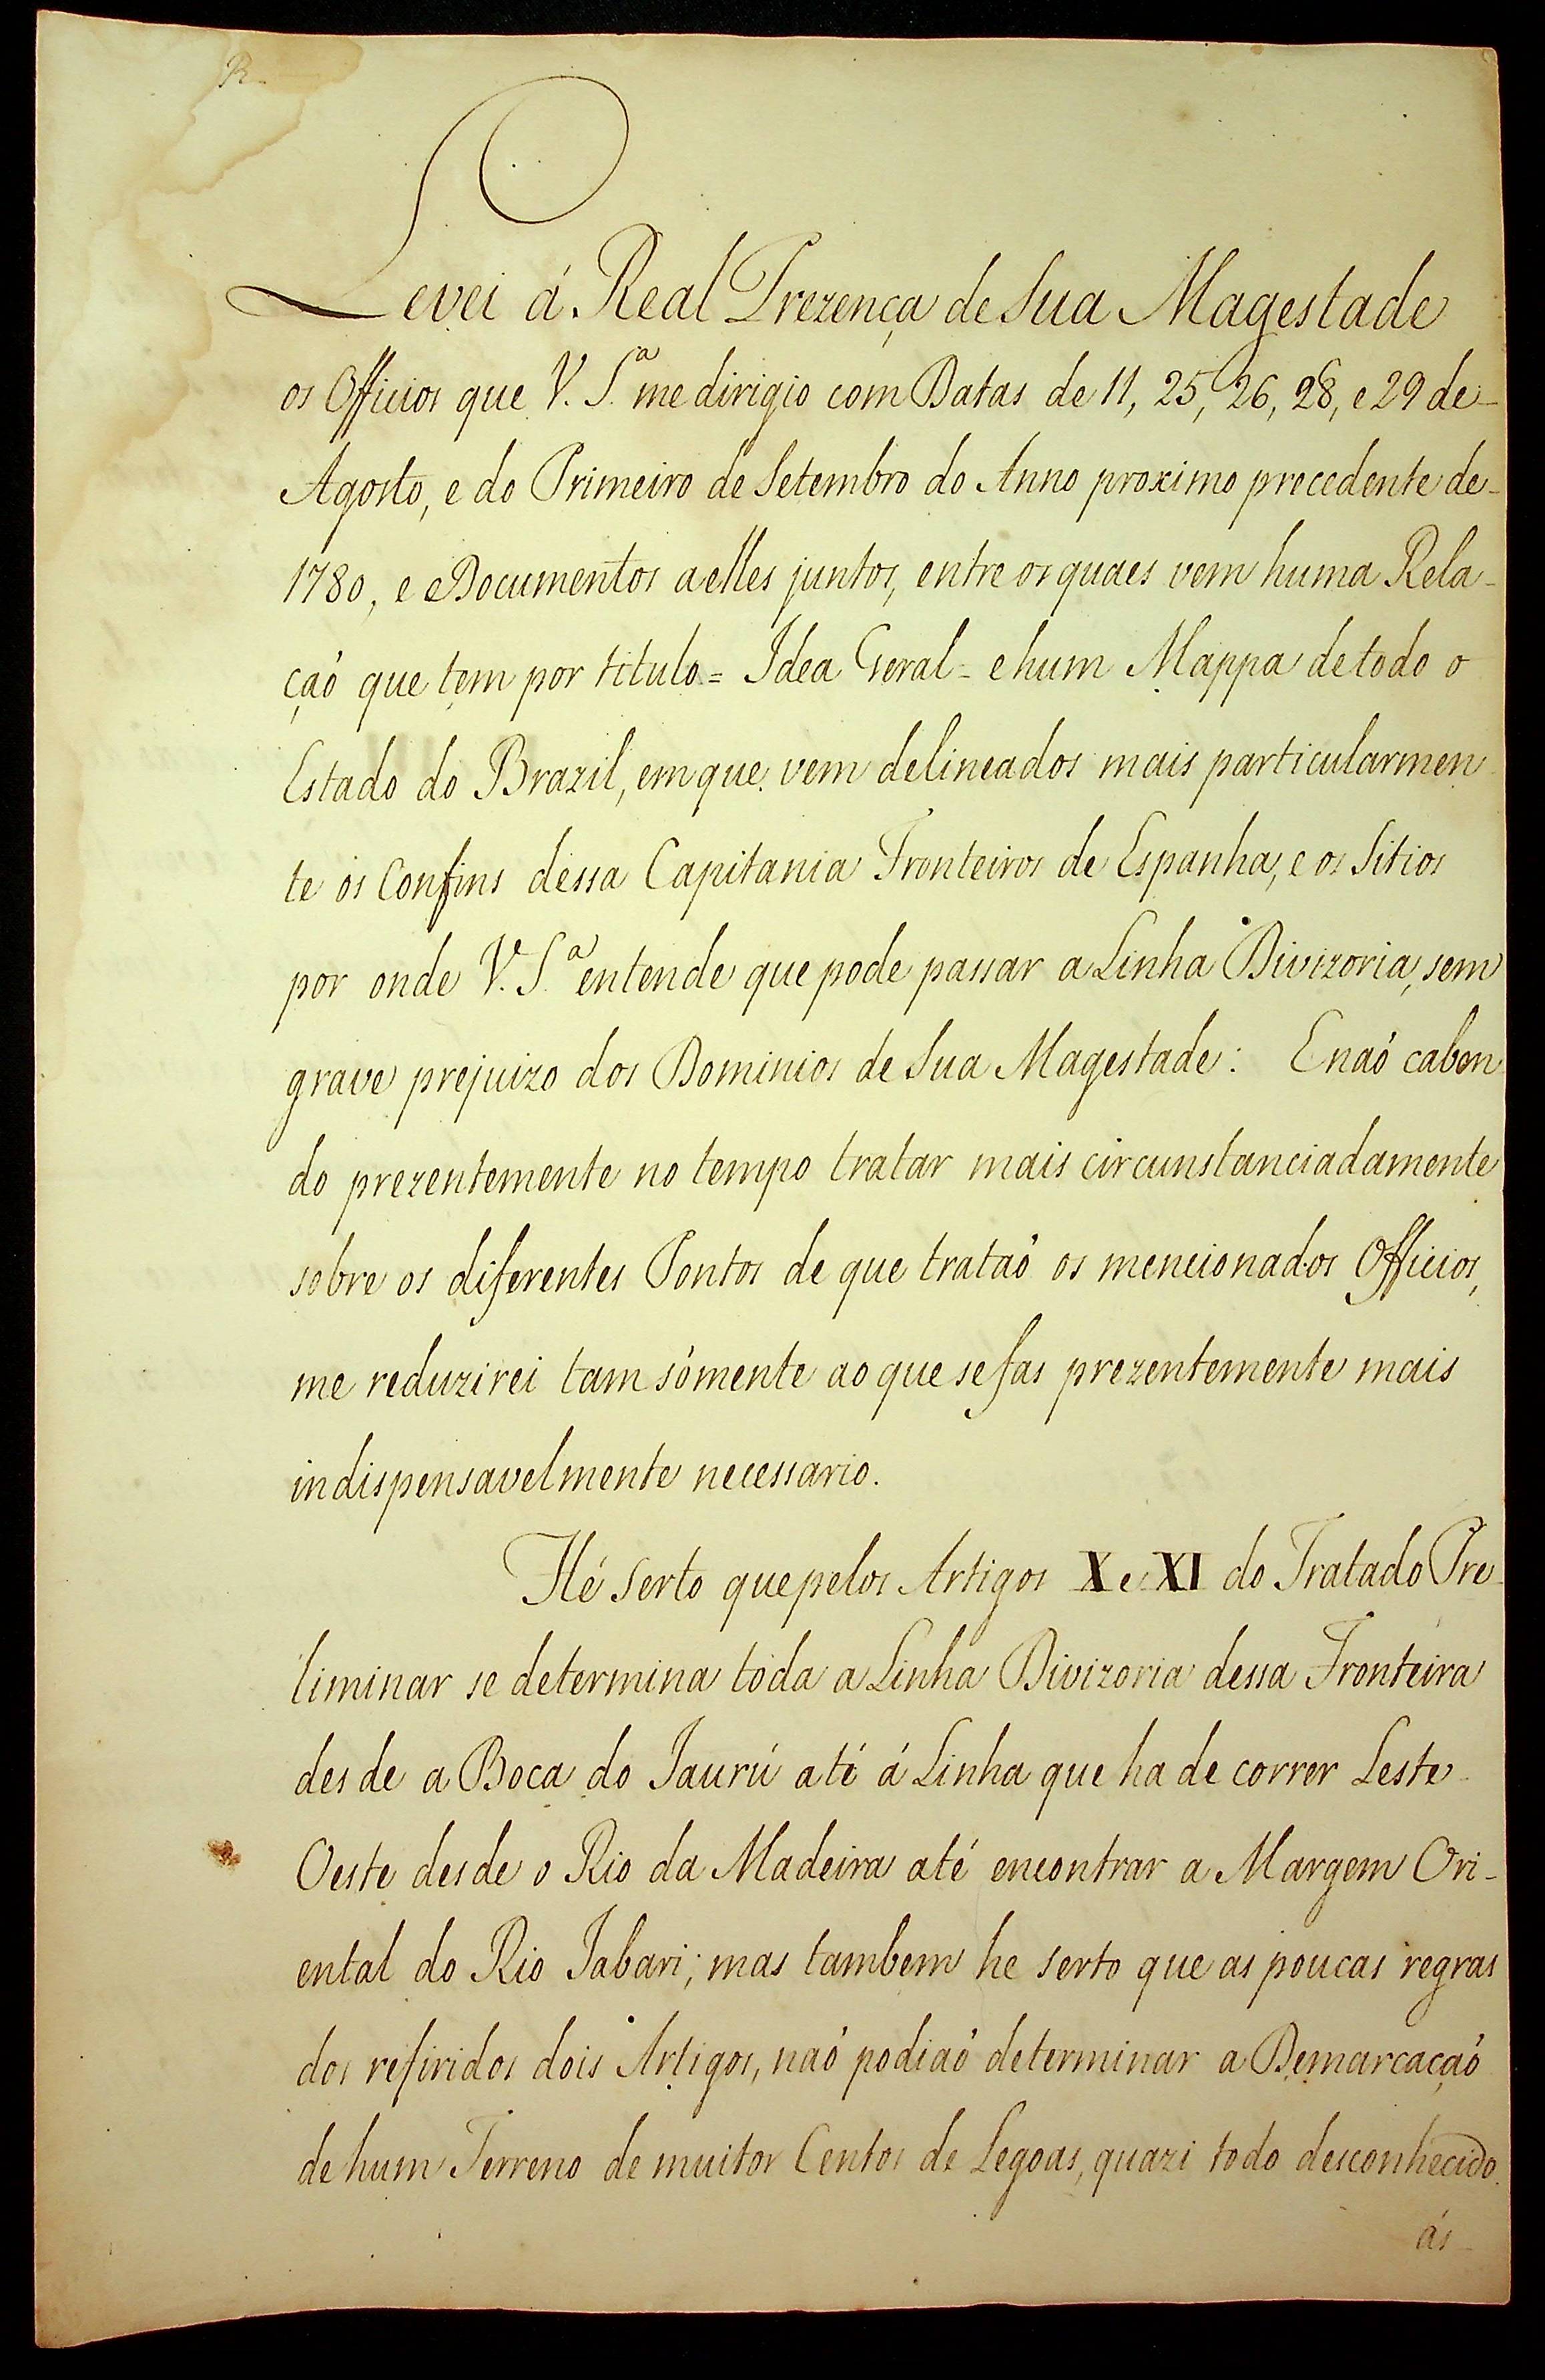 R.
Levei á Real Prezença de Sua Magestade
os Officios que V. S.ª me dirigio com Datas de 11, 25, 26, 28, e 29 de
Agosto, e do Primeiro de Setembro do Anno proximo precedente de
1780, e Documentos a elles juntos, entre os quaes vem huma Rela-
çaõ que tem por titulo = Idea Geral = e hum Mappa de todo o
Estado do Brazil, em que vem delineados mais particularmen
te os Confins dessa Capitania Fronteiros de Espanha, e os Sitios
por onde V. S.ª entende que pode passar a Linha Divizoria, sem
grave prejuizo dos Dominios de Sua Magestade: E naõ caben
do prezentemente no tempo tratar mais circunstanciadamente
sobre os diferentes Pontos de que trataõ os mencionados Officios,
me reduzirei tam sómente ao que se fas prezentemente mais
indispensavelmente necessario.
Hé Serto que pelos Artigos X e XI do Tratado Pre-
liminar se determina toda a Linha Divizoria dessa Fronteira
desde a Boca do Jaurú até á Linha que ha de correr Leste-
Oeste desde o Rio da Madeira até encontrar a Margem Ori-
ental do Rio Jabari; mas tambem he Serto que as poucas regras
dos refiridos dois Artigos, naõ podiaõ determinar a Demarcaçaõ
de hum Terreno de muitos Centos de Legoas, quazi todo desconhecido
ás